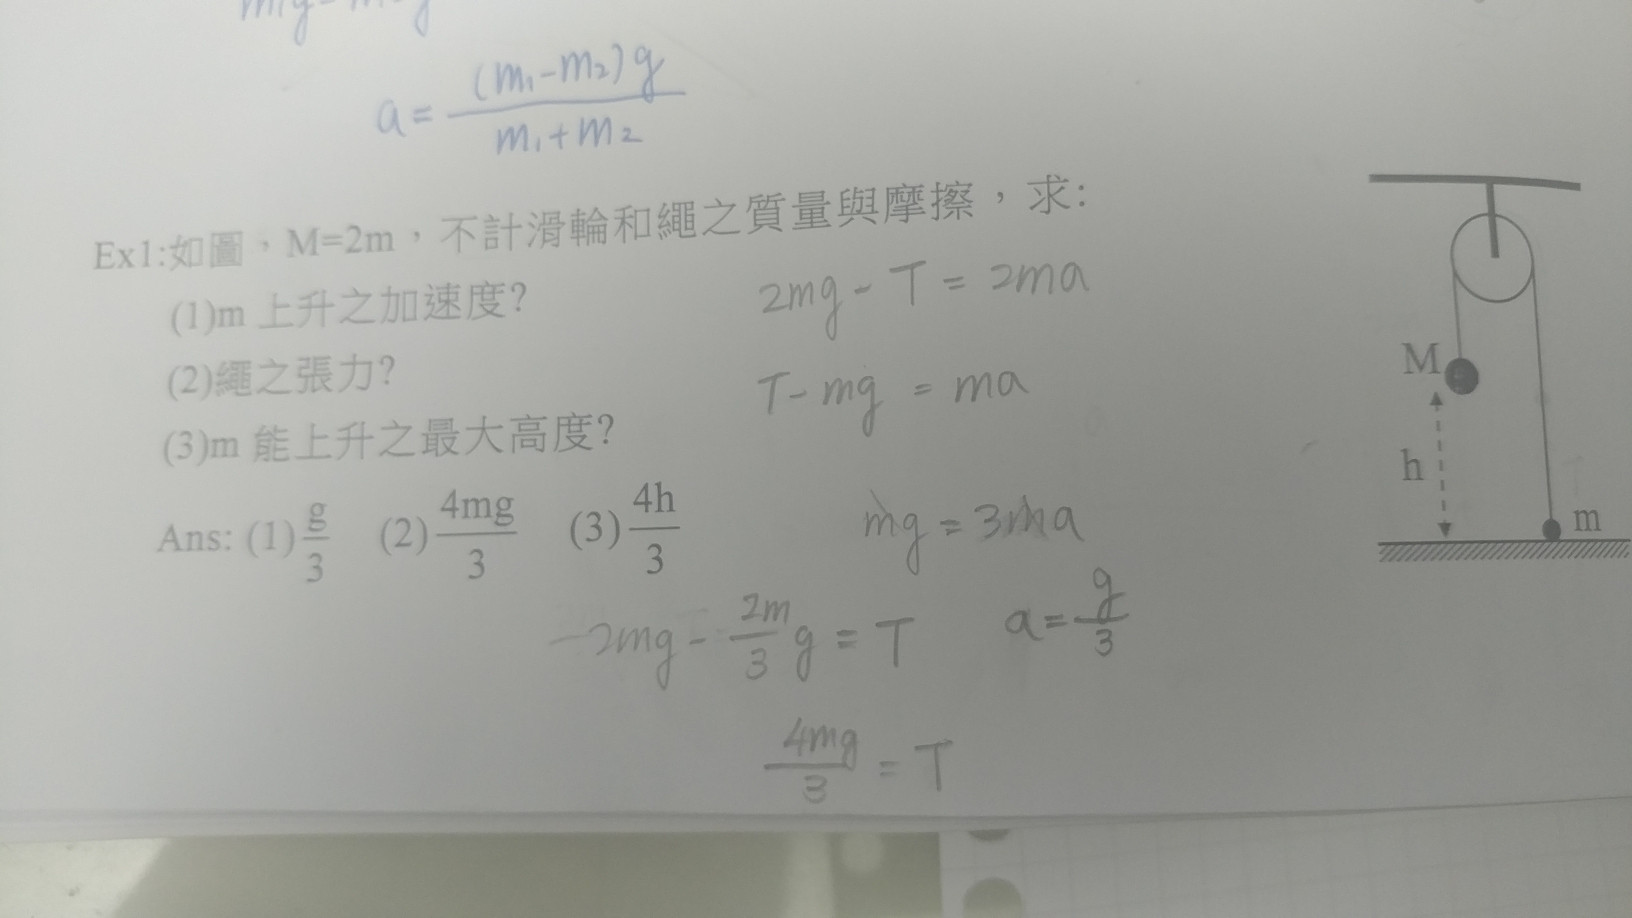 a = (m₁-m₂)g / m₁+m₂
Ex1:如圖，M=2m，不計滑輪和繩之質量與摩擦，求:
(1)m 上升之加速度?
2mg - T = 2ma
(2)繩之張力?
T - mg = ma
(3)m 能上升之最大高度?
Ans: (1) g/3 (2) 4mg/3 (3) 4h/3
mg = 3ma
2mg - 2m/3 g = T
a = g/3
4mg/3 = T
M
h
m